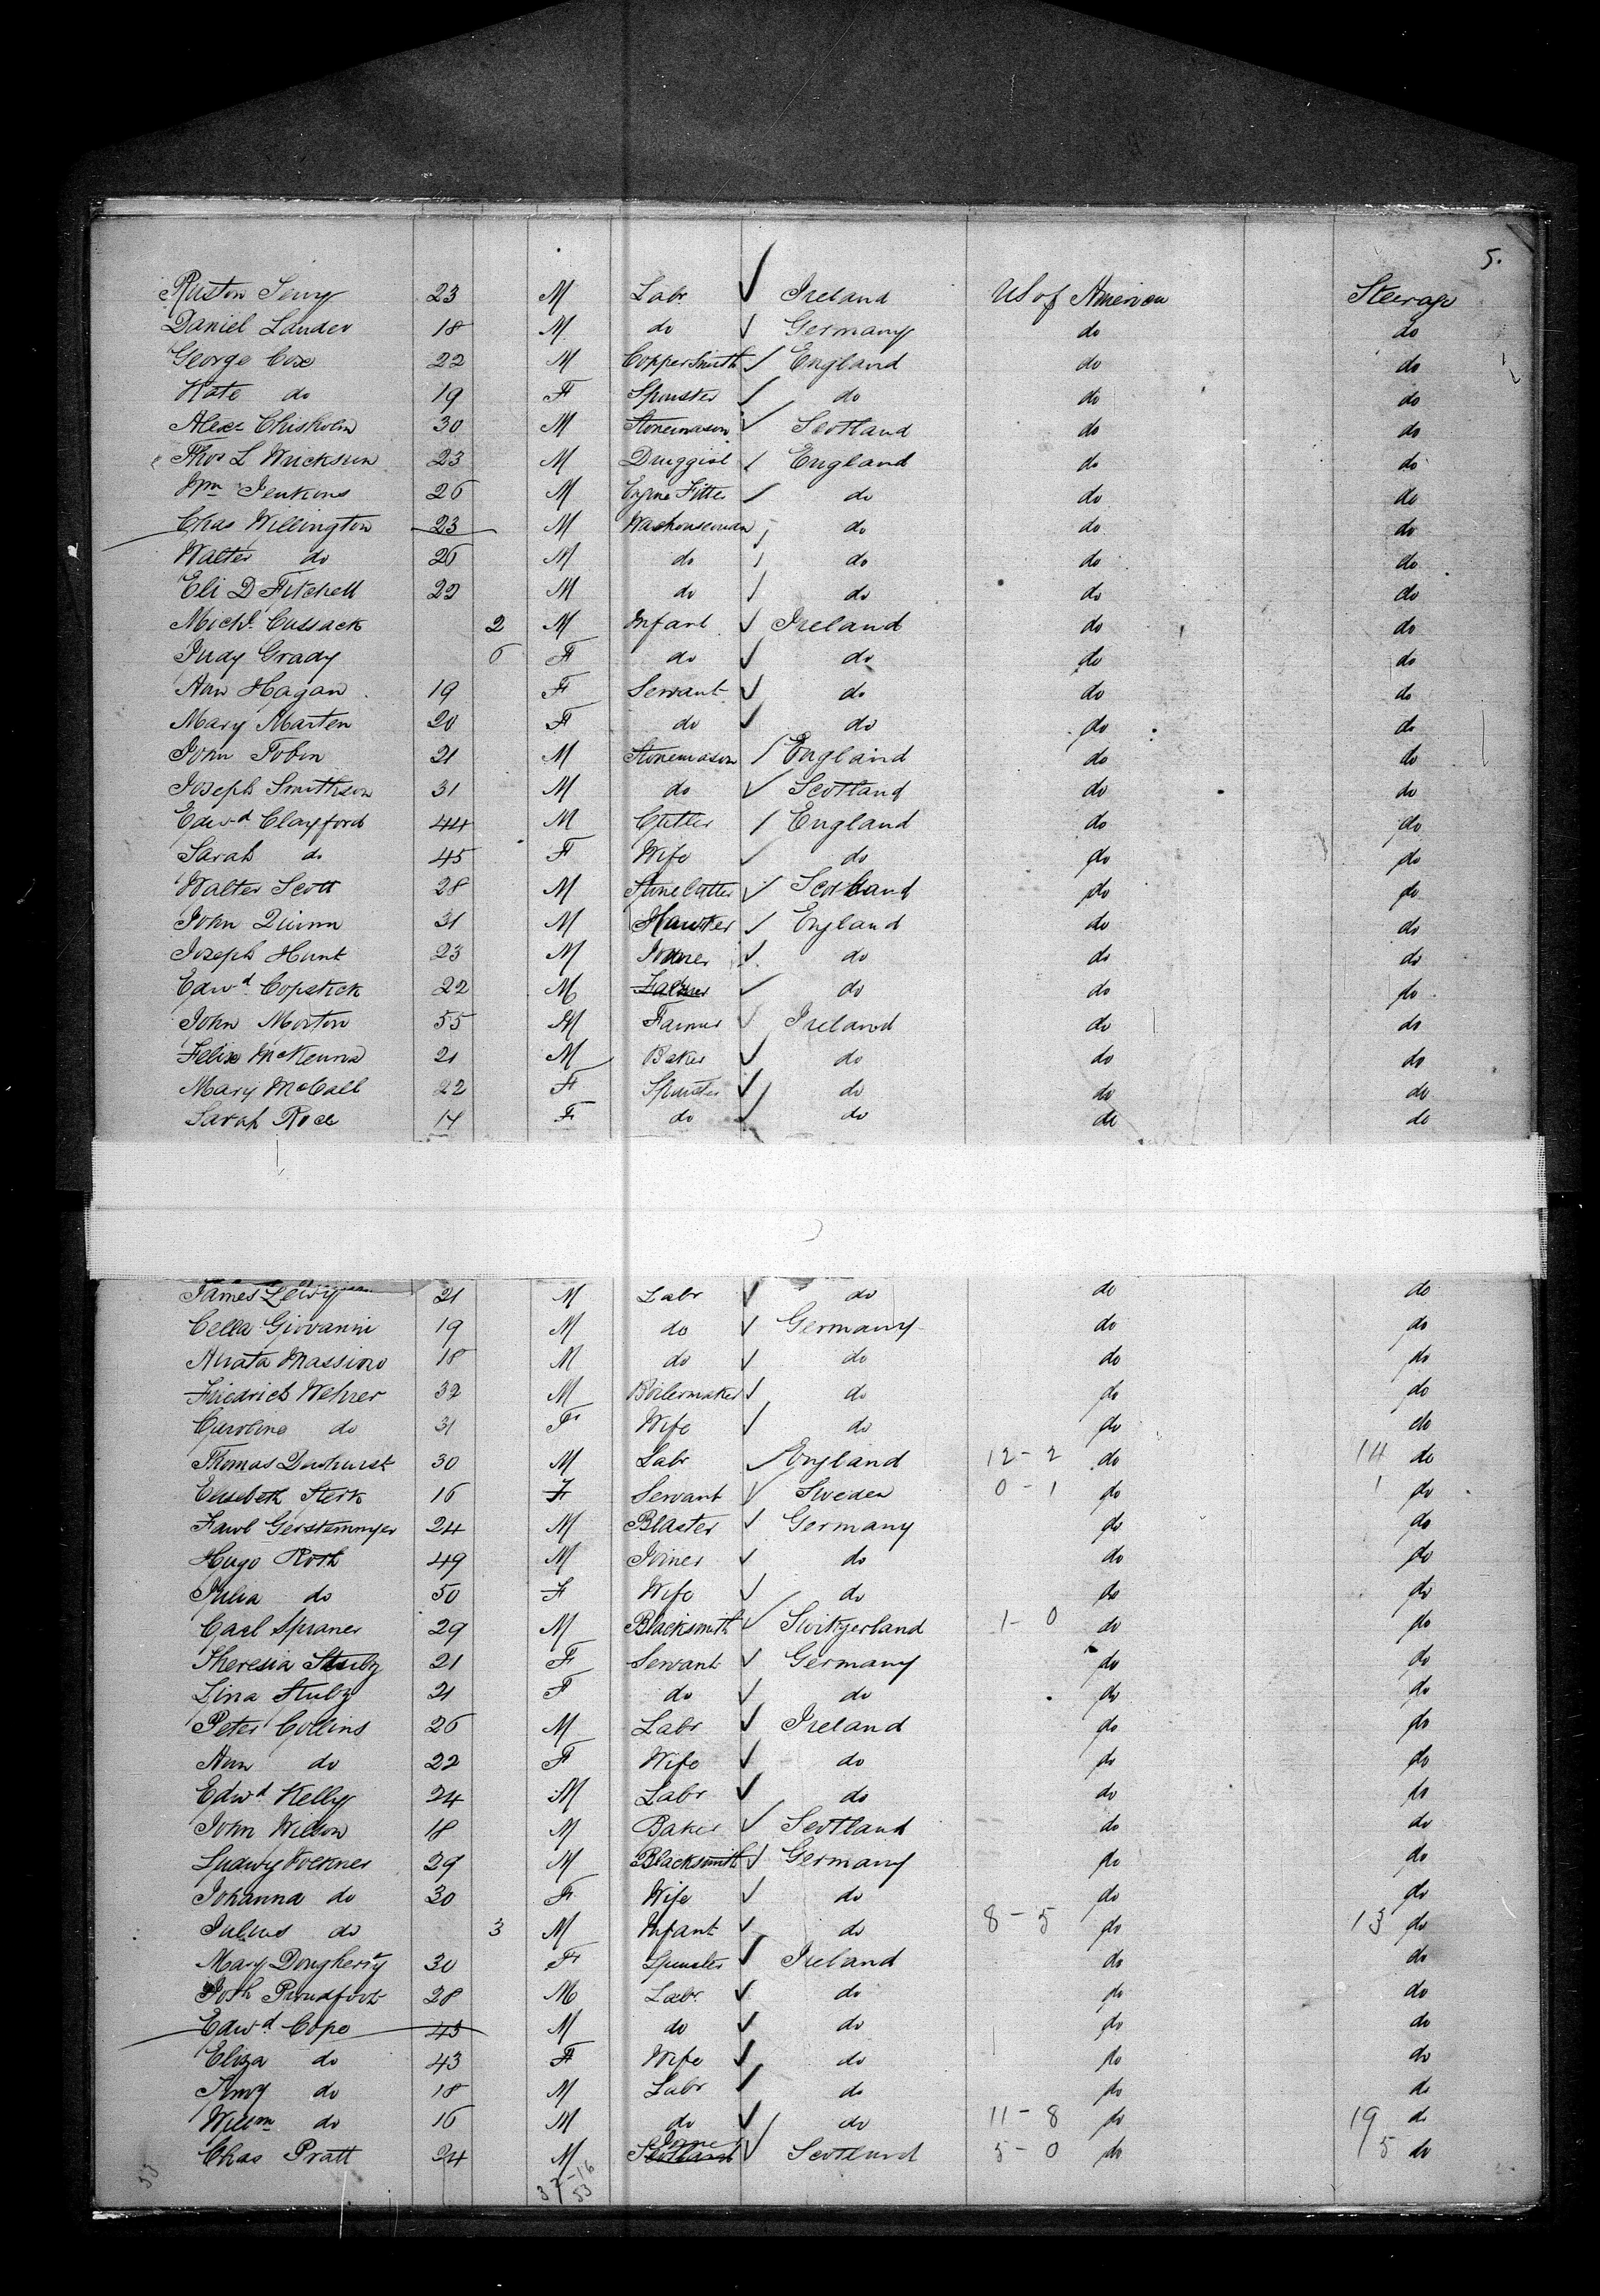 5.
Ruston Terry 23 M Labr Ireland US of America Steerage
Daniel Lander 18 M do Germany do do
George Cox 22 M Coppersmith England do do
Kate do 19 F Spinster do do do
Alexr Chisholm 30 M Stonemason Scotland do do
Thos L Wuckson 23 M Druggist England do do
Wm Jenkins 26 M Engine Fitter do do do
Chas Willington 23 M Warhouseman do do do
Walter do 26 M do do do do
Eli D Fitchell 22 M do do do do
Michl Cussack 2 M Infant Ireland do do
Judy Grady 6 F do do do do
Ann Hagan 19 F Servant do do do
Mary Marten 20 F do do do do
John Tobin 21 M Stonemason England do do
Joseph Smithson 31 M do Scotland do do
Edwd Clayford 44 M Cutler England do do
Sarah do 45 F Wife do do do
Walter Scott 28 M Stone Cutter Scotland do do
John Quinn 31 M Hawker England do do
Joseph Hunt 23 M Joiner do do do
Edwd Copstick 22 M do do do
John Morton 55 M Farmer Ireland do do
Felix McKenna 21 M Baker do do do
Mary McCall 22 F Spinster do do do
Sarah Roce 14 F do do do do
James 21 M Labr do do do
Cella Giovanni 19 M do Germany do do
Anata Massimo 18 M do do do do
Friedrich Wehrer 32 M Boilermaker do do do
Caroline do 31 F Wife do do do
Thomas Dewhurst 30 M Labr England 12-2 do 14 do
Elisebeth Sterk 16 F Servant Sweden 0-1 do 1 do
Gerstemmyer 24 M Blaster Germany do do
Hugo Roth 49 M Joiner do do do
Julia do 50 F Wife do do do
Carl Spraner 29 M Blacksmith Switzerland 1-0 do do
Theresia Stubz 21 F Servant Germany do do
Lina Stubz 21 F do do do do
Peter Collins 26 M Labr Ireland do do
Ann do 22 F Wife do do do
Edwd Kelly 24 M Labr do do do
John Wilson 18 M Baker Scotland do do
Ludwig Volkner 29 M Blacksmith Germany do do
Johanna do 30 F Wife do do do
Julius do 3 M Infant do 8-5 do 13 do
Mary Dougherty 30 F Spinster Ireland do do
Josh Proudfoot 28 M Labr do do do
Edwd Cope 43 M do do do do
Eliza do 43 F Wife do do do
do 18 M Labr do do do
Willm do 16 M do do 11-8 do 19 do
Chas Pratt 24 M Joiner Scotland Scotland 5-0 do 5 do
53 37-16
53